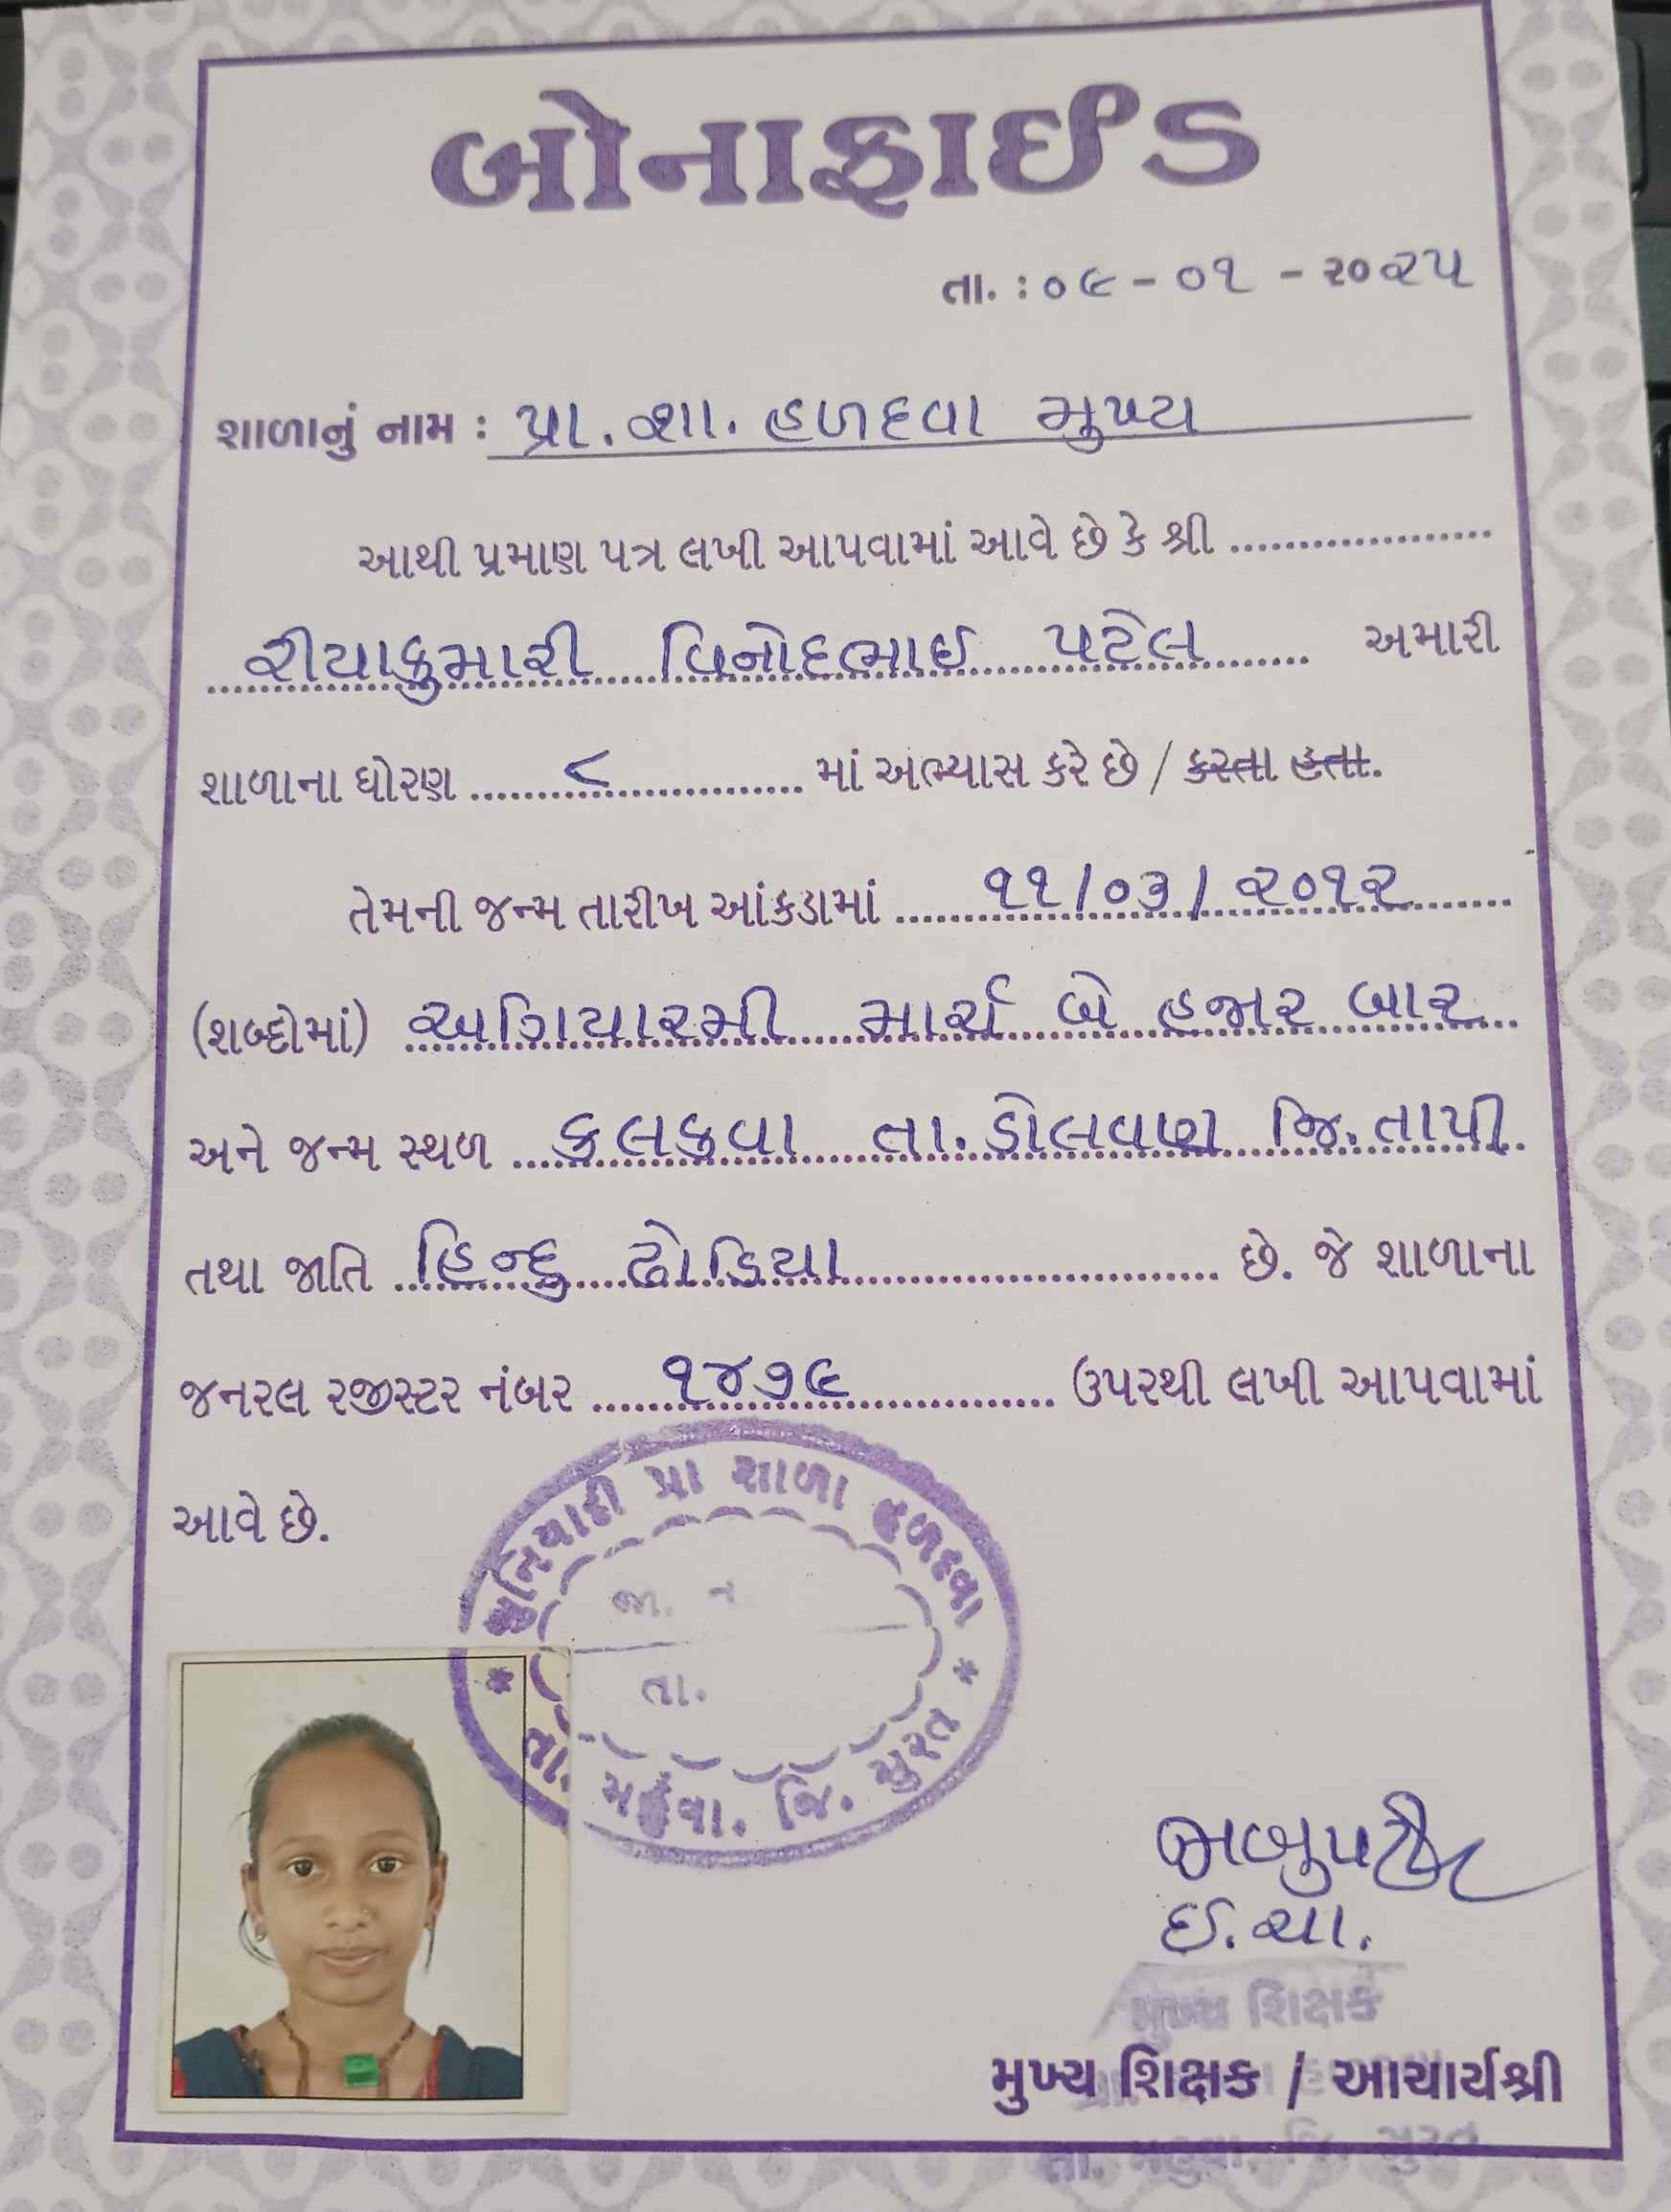 બોનાફાઈડ
તા. : ૦૯ - ૦૧ - ૨૦૨૫
શાળાનું નામ : પ્રા. શા. હળદવા મુખ્ય
આથી પ્રમાણ પત્ર લખી આપવામાં આવે છે કે શ્રી ....................
રીયાકુમારી વિનોદભાઈ પટેલ અમારી
શાળાના ધોરણ ૮ માં અભ્યાસ કરે છે / કરતા હતા.
તેમની જન્મ તારીખ આંકડામાં ૧૧/૦૩/૨૦૧૨
(શબ્દોમાં) અગિયારમી માર્ચ બે હજાર બાર
અને જન્મ સ્થળ કલકવા તા. ડોલવણ જિ. તાપી
તથા જાતિ હિન્દુ ઢોડિયા છે. જે શાળાના
જનરલ રજીસ્ટર નંબર ૧૪૭૯ ઉપરથી લખી આપવામાં
આવે છે.
બુનિયાદી પ્રા શાળા હળદવા
જા. ન
તા.
* તા. મહુવા. જિ. સુરત *
ઈ.ચા.
મુખ્ય શિક્ષક
મુખ્ય શિક્ષક / આચાર્યશ્રી
તા. મહુવા, જિ. સુરત